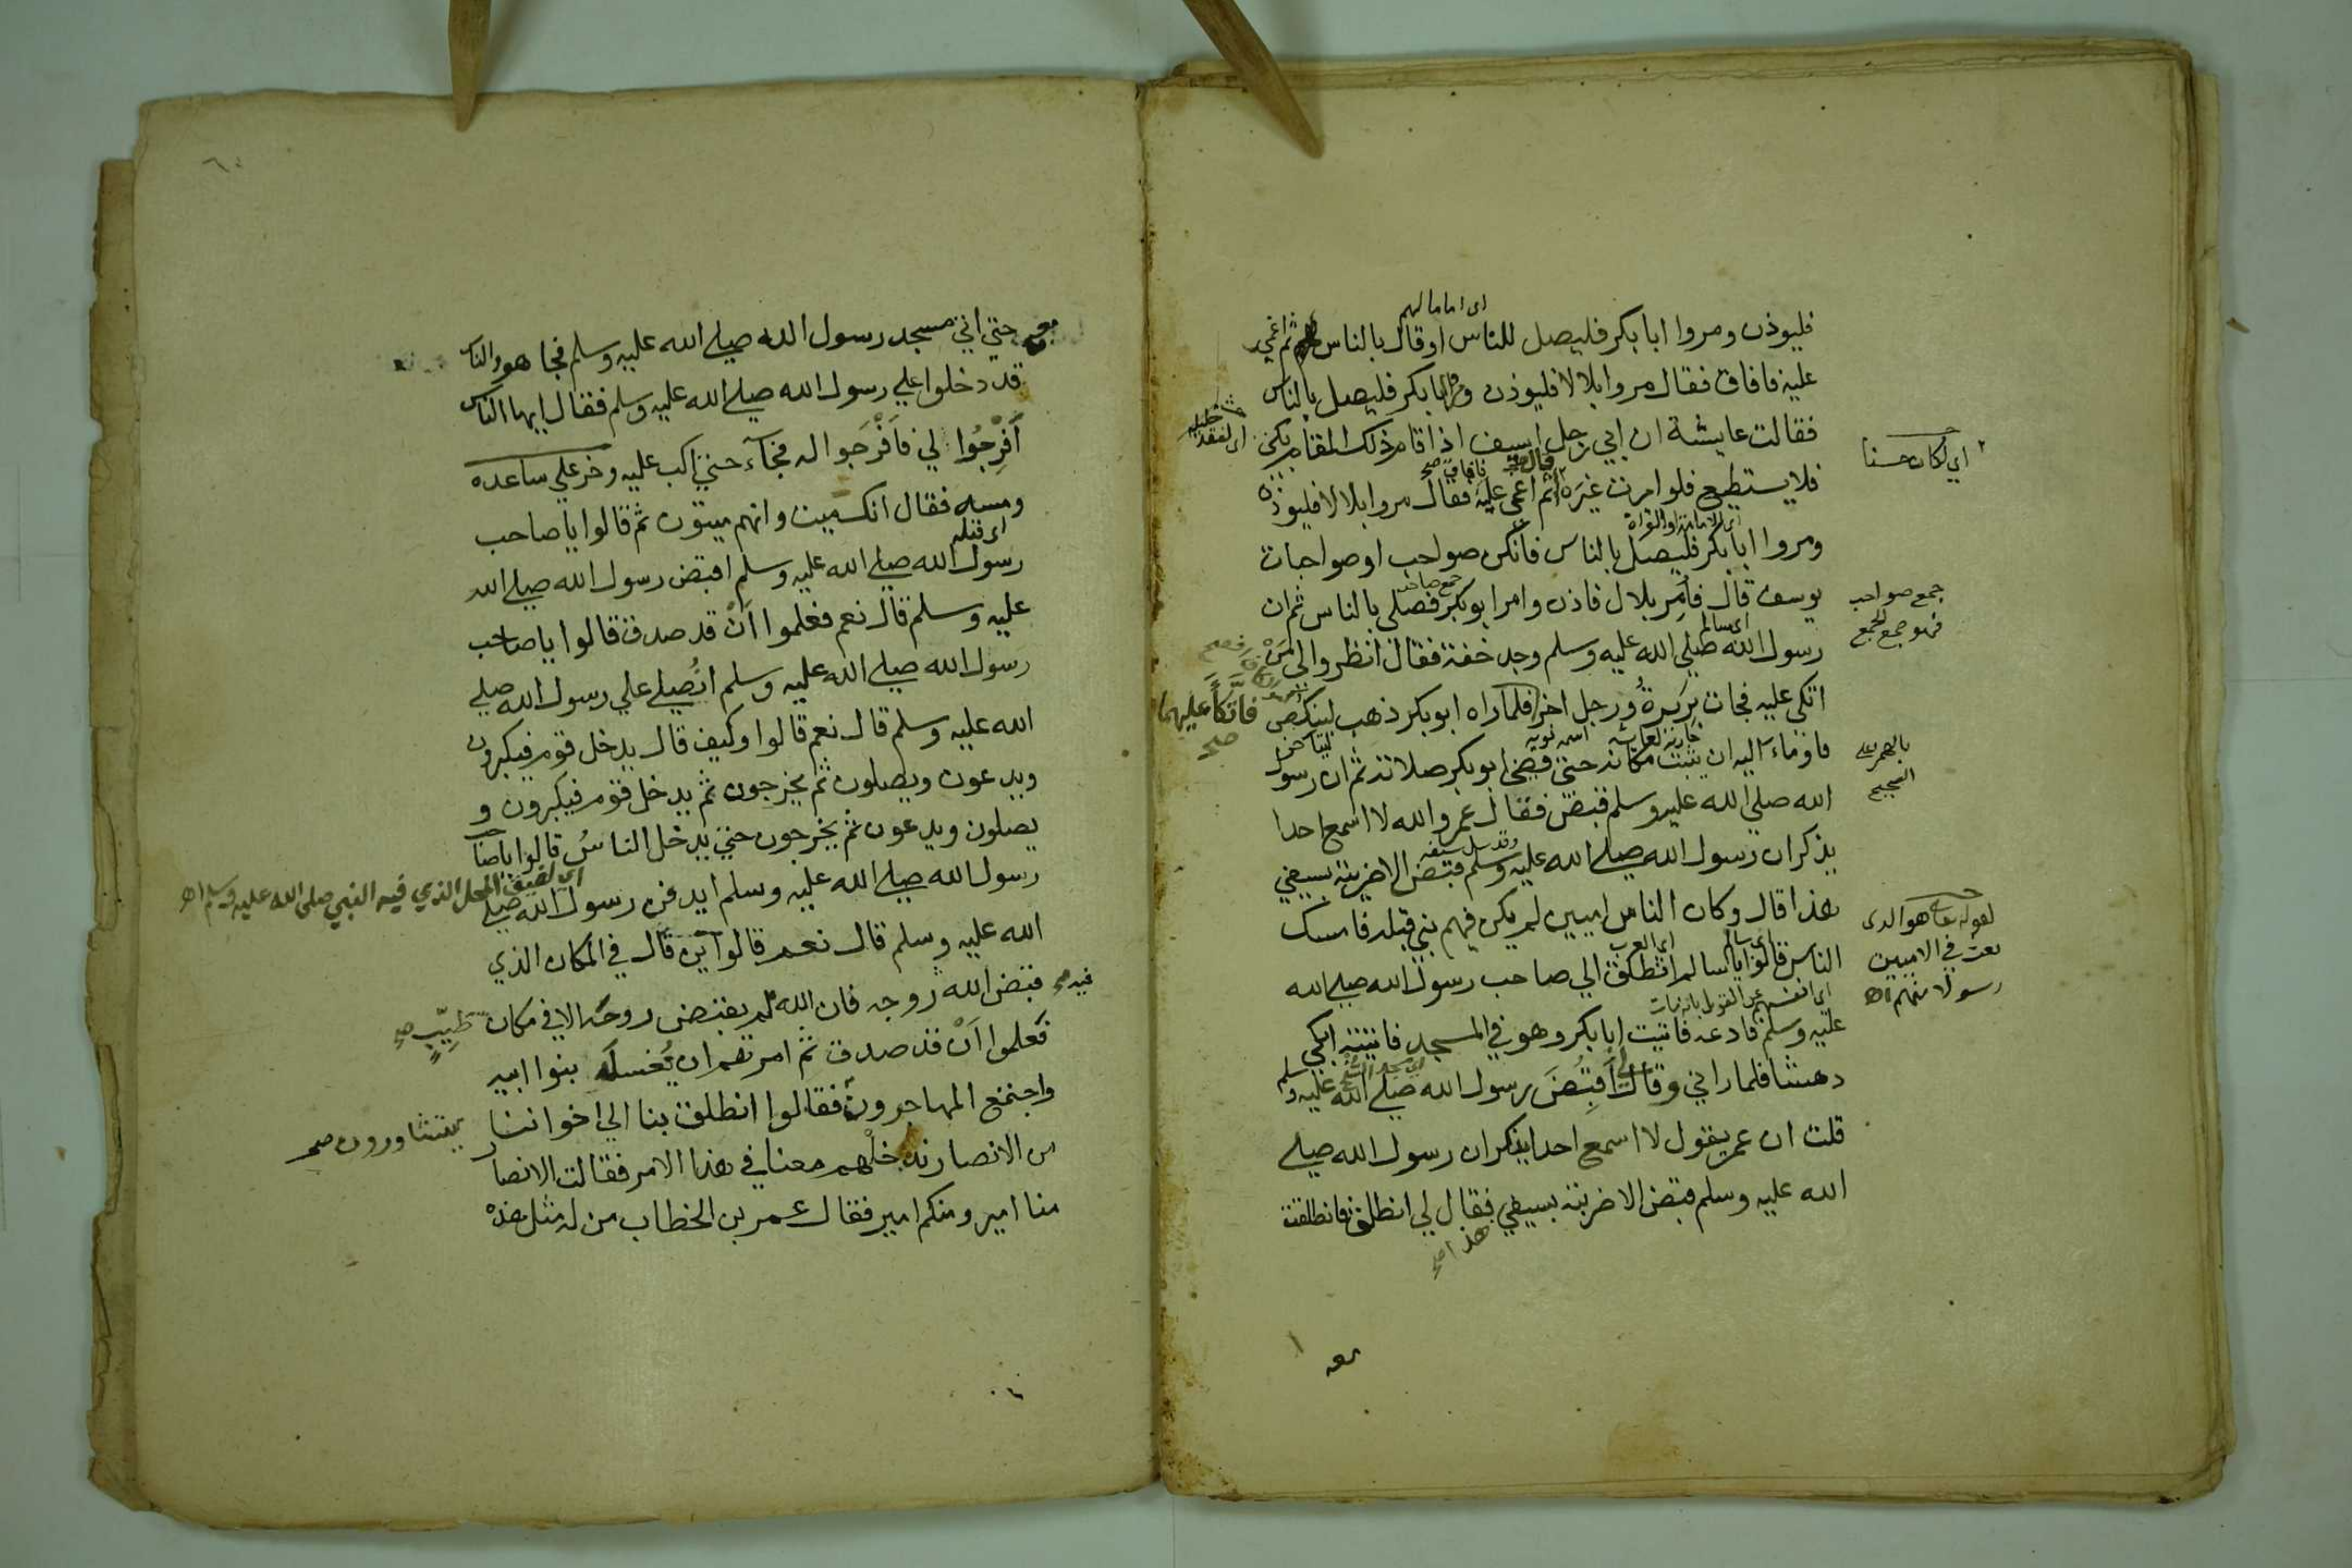 اى اماما لهم
فليوذن ومروا ابا بكر فليصل للناس او قال بالناس ثم اغمي
عليه فافاق فقال مروا بلالا فليوذن ومروا ابا بكر فليصل بالناس
فقالت عايشة ان ابي رجل اسيف اذا قام ذلك المقام بكى
اي لفقد خليله
فلا يستطيع فلو امرت غيره قال ثم اغمي عليه فافاق صح فقال مروا بلالا فليوذن
اي لكان حسنا
ومروا ابا بكر فليصل بالناس فانكن صواحب او صواحبات
يوسف قال فأمر بلال فاذن وامر ابو بكر فصلى بالناس ثم ان
جمع صاحبة
جمع صواحب
فهو جمع الجمع
رسول الله صلي الله عليه وسلم وجد خفة فقال انظروا لي من
اتكى عليه فجات بريرة ورجل اخر فلما راه ابو بكر ذهب لينكص
فاتكأ عليهما صح
اسمه نوبه
ليتاخر
فاوماء اليه ان يثبت مكانه حتى قضى ابو بكر صلاته ثم ان رسول
الله صلي الله عليه وسلم قبض فقال عمر والله لا اسمع احدا
يذكر ان رسول الله صلي الله عليه وسلم قبض الا ضربته بسيفي
وقد سل سيفه
هذا قال وكان الناس اميين لم يكن فيهم نبي قبله فامسك
اي العرب
لقوله تعالى هو الذى
بعث في الاميين
رسولا منهم اهـ
الناس قالوا يا سالم انطلق الي صاحب رسول الله صلي الله
اي انفسهم عن القول بانه مات
عليه وسلم فادعه فاتيت ابا بكر وهو في المسجد فاتيته ابكي
دهشا فلما راني قال لي أقبض رسول الله صلي الله عليه وسلم
قلت ان عمر يقول لا اسمع احدا يذكر ان رسول الله صلي
الله عليه وسلم قبض الا ضربته بسيفي فقال لي انطلق فانطلقت
هذا صح
معه
٦٠
معه حتي اتي مسجد رسول الله صلي الله عليه وسلم فجا هو والناس
قد دخلوا علي رسول الله صلي الله عليه وسلم فقال ايها الناس
أفرجوا لي فأفرجوا له فجآء حتي اكب عليه وخر علي ساعده
ومسه فقال انك ميت وانهم ميتون ثم قالوا يا صاحب
اى قبله
رسول الله صلي الله عليه وسلم اقبض رسول الله صلي الله
عليه وسلم قال نعم فعلموا أن قد صدق قالوا يا صاحب
رسول الله صلي الله عليه وسلم انصلي علي رسول الله صلي
الله عليه وسلم قال نعم قالوا وكيف قال يدخل قوم فيكبرون
ويدعون ويصلون ثم يخرجون ثم يدخل قوم فيكبرون و
يصلون ويدعون ثم يخرجون حتي يدخل الناس قالوا يا صاحب
رسول الله صلي الله عليه وسلم ايدفن رسول الله صلي
اي لضيق المحل الذي فيه النبي صلى الله عليه وسلم اهـ
الله عليه وسلم قال نعم قالوا اين قال في المكان الذي
قبض الله فيه صح روحه فان الله لم يقبض روحه الا في مكان طيب صح
فعلموا أن قد صدق ثم امرهم ان يغسله بنوا ابيه
واجتمع المهاجرون يتشاورون صح فقالوا انطلق بنا الي اخواننا
من الانصار ندخلهم معنا في هذا الامر فقالت الانصار
منا امير ومنكم امير فقال عمر بن الخطاب من له مثل هذه